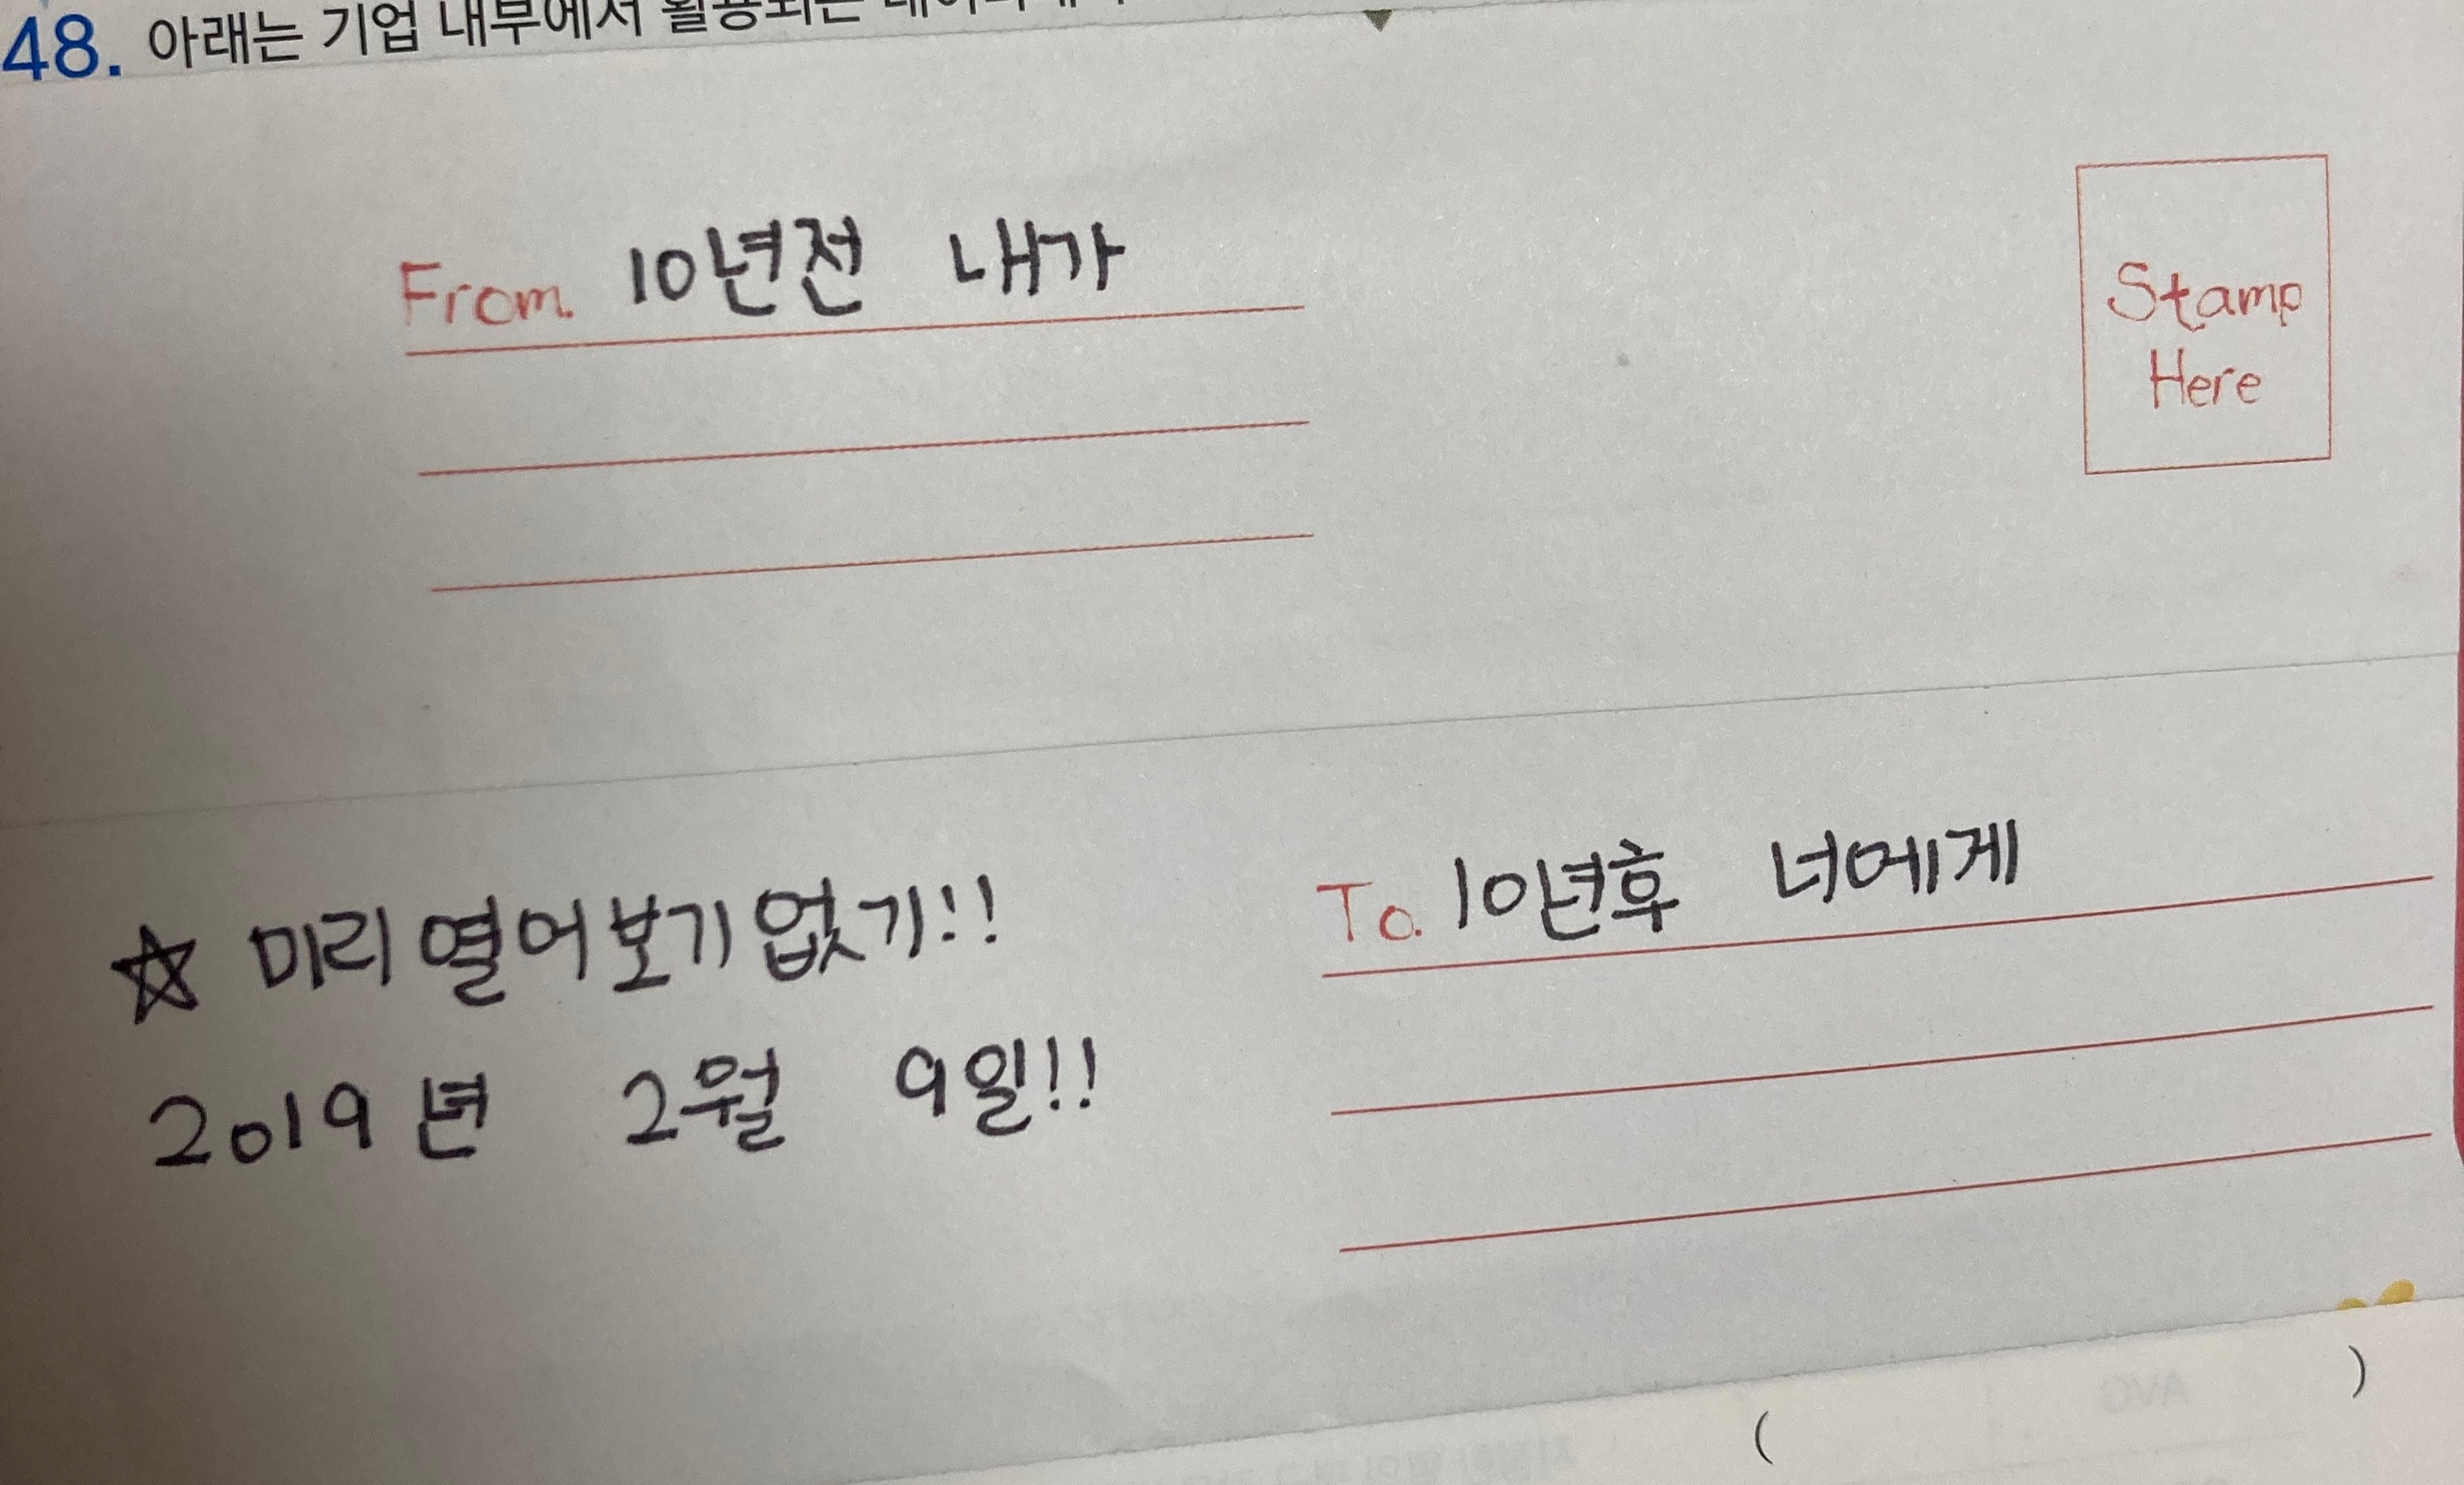 48. 아래는 기업 내부에서 활용되는
From. 10년전 내가
Stamp
Here
To. 10년후 너에게
☆ 미리 열어보기 없기!!
2019년 2월 9일!!
( )
AVG